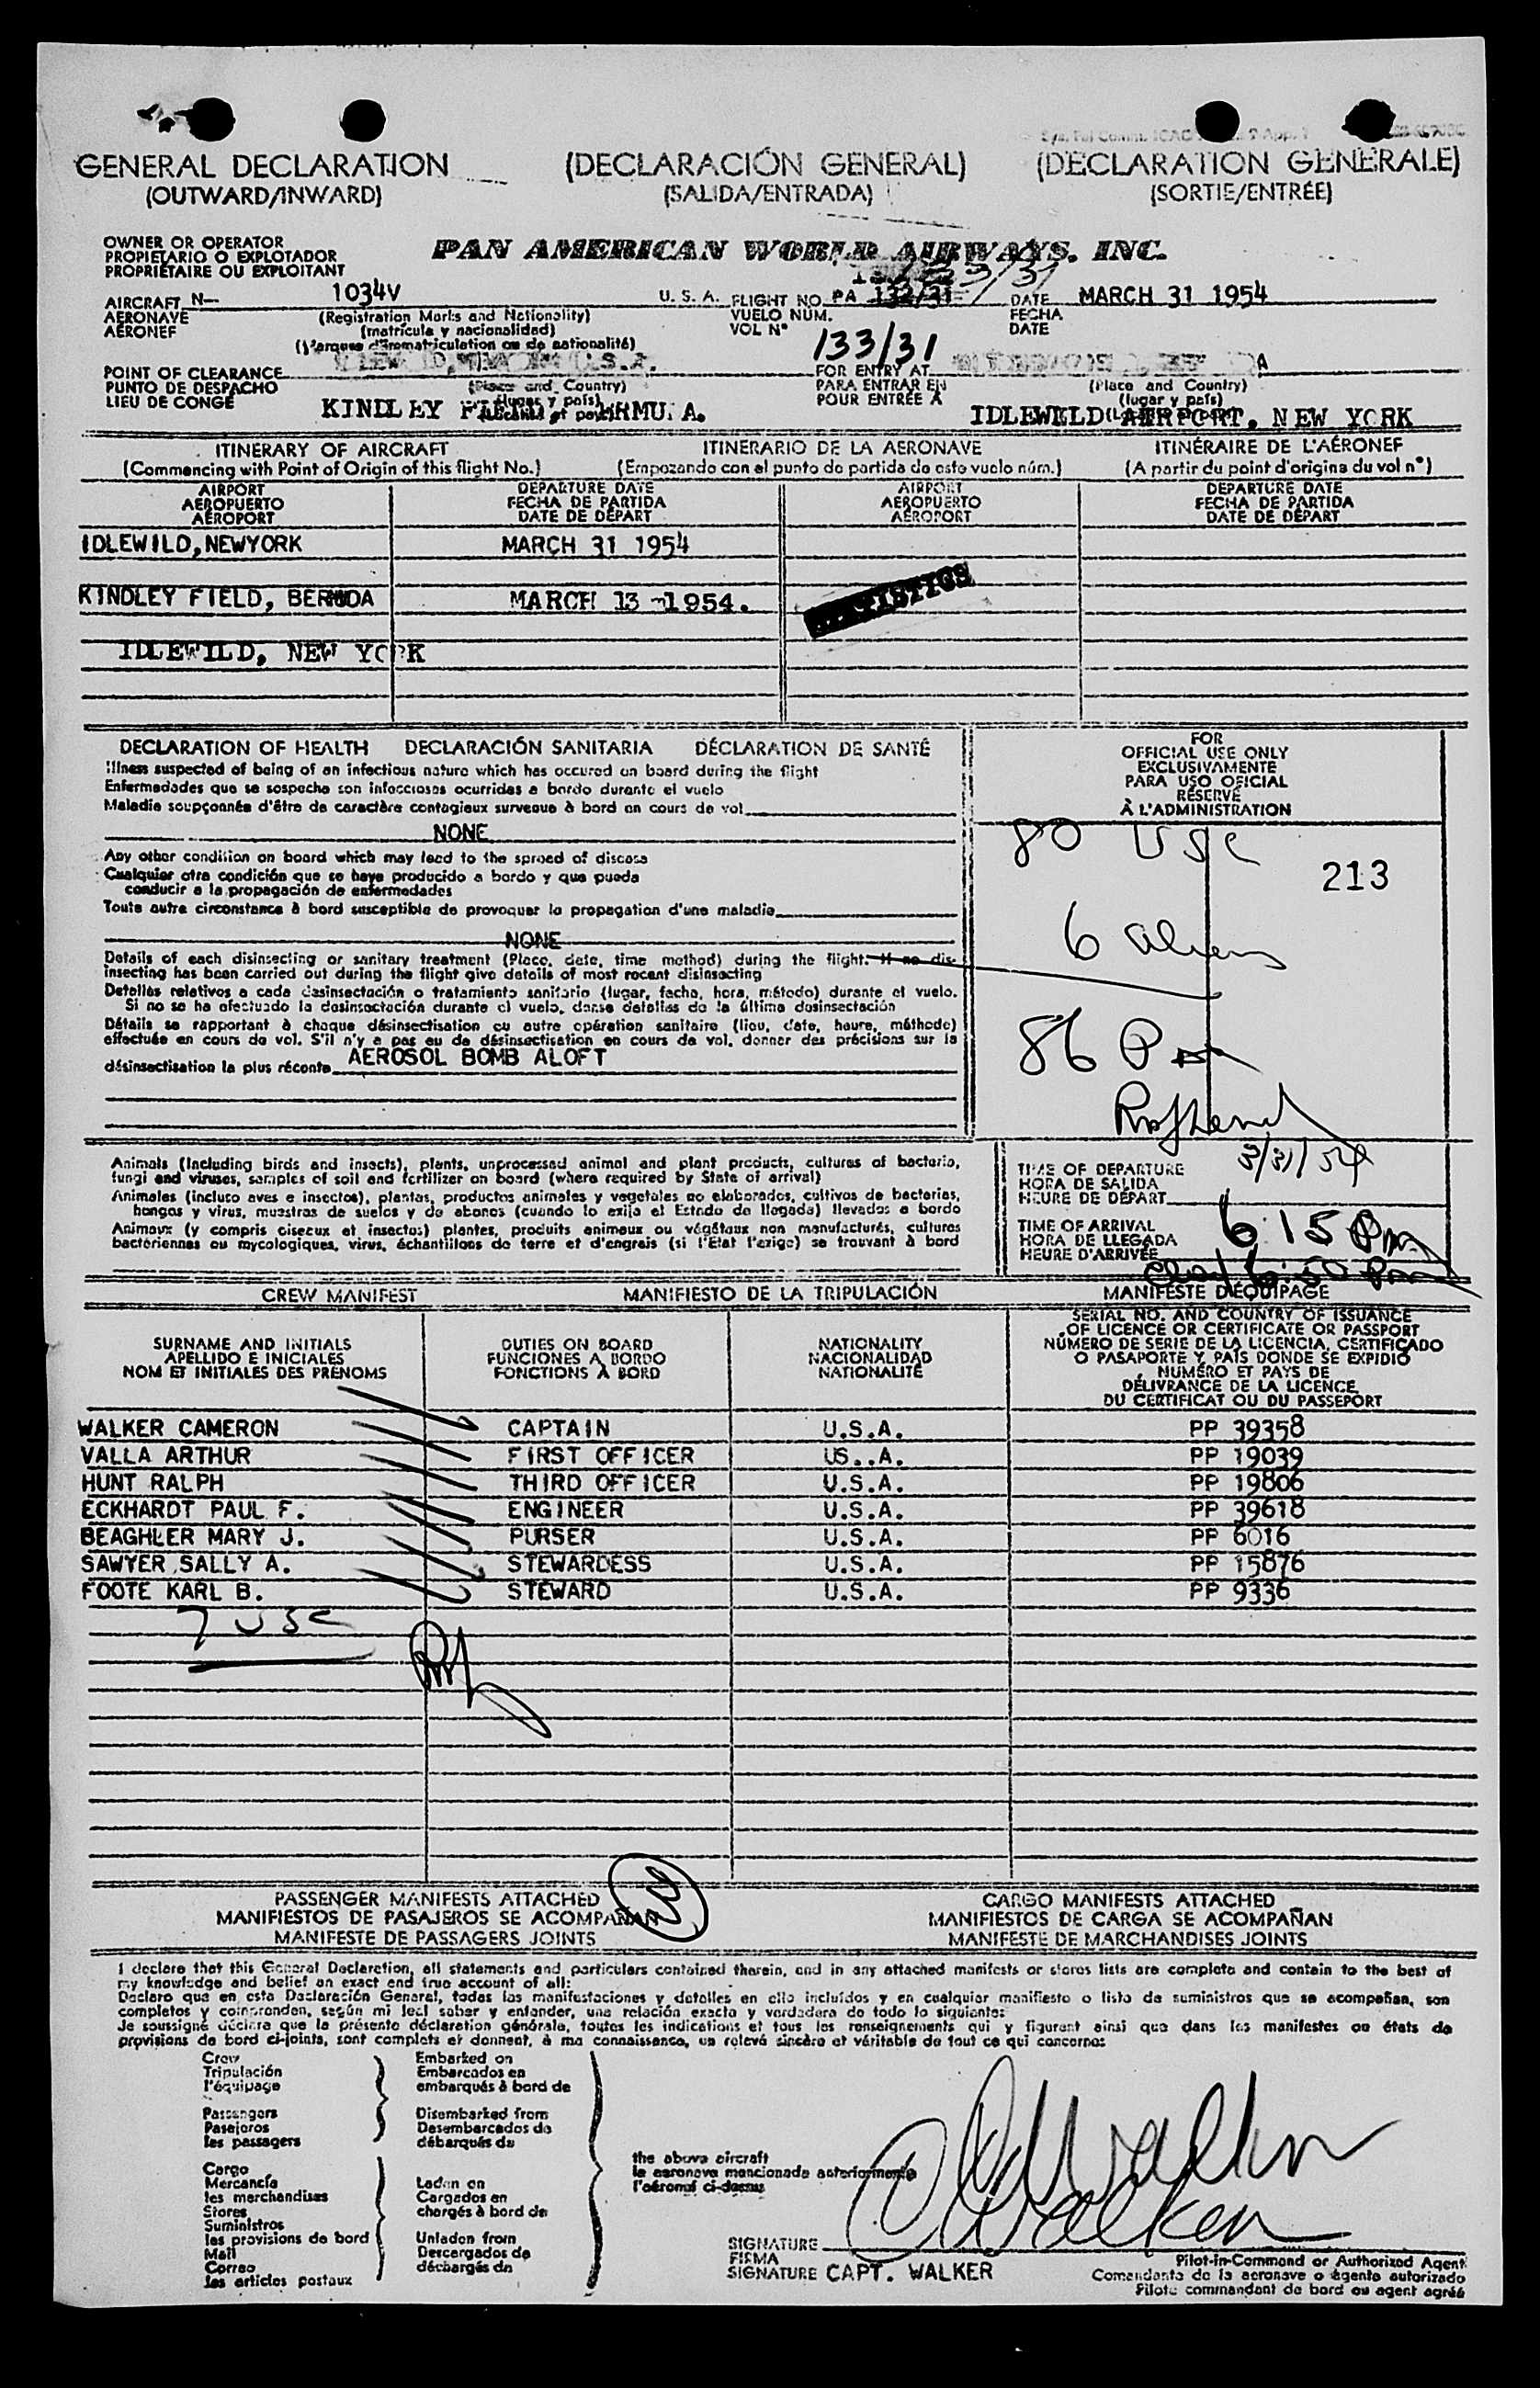 GENERAL DECLARATION (DECLARACIÓN GENERAL) (DECLARATION GENERALE)
(OUTWARD/INWARD) (SALIDA/ENTRADA) (SORTIE/ENTRÉE)
OWNER OR OPERATOR
PROPIETARIO O EXPLOTADOR
PROPRIÉTAIRE OU EXPLOITANT
PAN AMERICAN WORLD AIRWAYS, INC.
AIRCRAFT N— 1034V U. S. A. FLIGHT NO. PA 132/31 DATE MARCH 31 1954
AERONAVE (Registration Marks and Nationality) VUELO NÚM. FECHA
AÉRONEF (matrícula y nacionalidad) VOL N° DATE
(Marques d'immatriculation ou de nationalité) 133/31
POINT OF CLEARANCE FOR ENTRY AT
PUNTO DE DESPACHO (Place and Country) PARA ENTRAR EN (Place and Country)
LIEU DE CONGÉ (lugar y país) POUR ENTRÉE A (lugar y país)
KINDLEY IDLEWILD AIRPORT, NEW YORK
ITINERARY OF AIRCRAFT ITINERARIO DE LA AERONAVE ITINÉRAIRE DE L'AÉRONEF
(Commencing with Point of Origin of this flight No.) (Empezando con el punto de partida de este vuelo núm.) (A partir du point d'origine du vol n°)
AIRPORT DEPARTURE DATE AIRPORT DEPARTURE DATE
AEROPUERTO FECHA DE PARTIDA AEROPUERTO FECHA DE PARTIDA
AÉROPORT DATE DE DÉPART AÉROPORT DATE DE DÉPART
IDLEWILD,NEWYORK MARCH 31 1954
KINDLEY FIELD, BERMUDA MARCH 13 -1954.
IDLEWILD, NEW YORK
DECLARATION OF HEALTH DECLARACIÓN SANITARIA DÉCLARATION DE SANTÉ
Illness suspected of being of an infectious nature which has occured on board during the flight
Enfermedades que se sospecha son infecciosas ocurridas a bordo durante el vuelo
Maladie soupçonnée d'être de caractère contagieux survenue à bord en cours de vol
NONE
Any other condition on board which may lead to the spread of disease
Cualquier otra condición que se haya producido a bordo y que pueda
conducir a la propagación de enfermedades
Toute autre circonstance à bord susceptible de provoquer la propagation d'une maladie
NONE
Details of each disinsecting or sanitary treatment (Place, date, time method) during the flight. If no dis-
insecting has been carried out during the flight give details of most recent disinsecting
Detalles relativos a cada desinsectación o tratamiento sanitario (lugar, fecha, hora, método) durante el vuelo.
Si no se ha efectuado la desinsectación durante el vuelo, danse detalles de la última desinsectación
Détails se rapportant à chaque désinsectisation ou autre opération sanitaire (lieu, date, heure, méthode)
effectuée en cours de vol. S'il n'y a pas eu de désinsectisation en cours de vol, donner des précisions sur la
désinsectisation la plus récente AEROSOL BOMB ALOFT
FOR
OFFICIAL USE ONLY
EXCLUSIVAMENTE
PARA USO OFICIAL
RÉSERVÉ
À L'ADMINISTRATION
80 USC
213
6 aliens
86 P
3/31/54
Animals (Including birds and insects), plants, unprocessed animal and plant products, cultures of bacteria,
fungi and viruses, samples of soil and fertilizer on board (where required by State of arrival)
Animales (incluso aves e insectos), plantas, productos animales y vegetales no elaborados, cultivos de bacterias,
hongos y virus, muestras de suelos y de abonos (cuando lo exija el Estado de llegada) llevados a bordo
Animaux (y compris oiseaux et insectes) plantes, produits animaux ou végétaux non manufacturés, cultures
bactériennes ou mycologiques, virus, échantillons de terre et d'engrais (si l'État l'exige) se trouvant à bord
TIME OF DEPARTURE
HORA DE SALIDA
HEURE DE DÉPART
TIME OF ARRIVAL
HORA DE LLEGADA
HEURE D'ARRIVÉE
6 15 Pm
6:50 Pm
CREW MANIFEST MANIFIESTO DE LA TRIPULACIÓN MANIFESTE D'ÉQUIPAGE
SURNAME AND INITIALS
APELLIDO E INICIALES
NOM ET INITIALES DES PRÉNOMS
DUTIES ON BOARD
FUNCIONES A BORDO
FONCTIONS À BORD
NATIONALITY
NACIONALIDAD
NATIONALITÉ
SERIAL NO. AND COUNTRY OF ISSUANCE
OF LICENCE OR CERTIFICATE OR PASSPORT
NÚMERO DE SERIE DE LA LICENCIA, CERTIFICADO
O PASAPORTE Y PAÍS DONDE SE EXPIDIÓ
NUMÉRO ET PAYS DE
DÉLIVRANCE DE LA LICENCE,
DU CERTIFICAT OU DU PASSEPORT
WALKER CAMERON CAPTAIN U.S.A. PP 39358
VALLA ARTHUR FIRST OFFICER US..A. PP 19039
HUNT RALPH THIRD OFFICER U.S.A. PP 19806
ECKHARDT PAUL F. ENGINEER U.S.A. PP 39618
BEAGHLER MARY J. PURSER U.S.A. PP 6016
SAWYER SALLY A. STEWARDESS U.S.A. PP 15876
FOOTE KARL B. STEWARD U.S.A. PP 9336
7 USC
PASSENGER MANIFESTS ATTACHED CARGO MANIFESTS ATTACHED
MANIFIESTOS DE PASAJEROS SE ACOMPAÑAN MANIFIESTOS DE CARGA SE ACOMPAÑAN
MANIFESTE DE PASSAGERS JOINTS MANIFESTE DE MARCHANDISES JOINTS
I declare that this General Declaration, all statements and particulars contained therein, and in any attached manifests or stores lists are complete and contain to the best of
my knowledge and belief an exact and true account of all:
Declaro que en esta Declaración General, todas las manifestaciones y detalles en ella incluídos y en cualquier manifiesto o lista de suministros que se acompañan, son
completos y comprenden, según mi leal saber y entender, una relación exacta y verdadera de todo lo siguiente:
Je soussigné déclare que la présente déclaration générale, toutes les indications et tous les renseignements qui y figurent ainsi que dans les manifestes ou états de
provisions de bord ci-joints, sont complets et donnent, à ma connaissance, un relevé sincère et véritable de tout ce qui concerne:
Crew Embarked on
Tripulación Embarcados en
l'équipage embarqués à bord de
Passengers Disembarked from
Pasajeros Desembarcados de
les passagers débarqués du
the above aircraft
la aeronave mencionada anteriormente
l'aéronef ci-dessus
Cargo
Mercancía Laden on
les marchandises Cargados en
Stores chargés à bord de
Suministros
les provisions de bord Unladen from
Mail Descargados de
Correo déchargés du
les articles postaux
SIGNATURE
FIRMA
SIGNATURE CAPT. WALKER
Pilot-in-Command or Authorized Agent
Comandante de la aeronave o agente autorizado
Pilote commandant de bord ou agent agréé